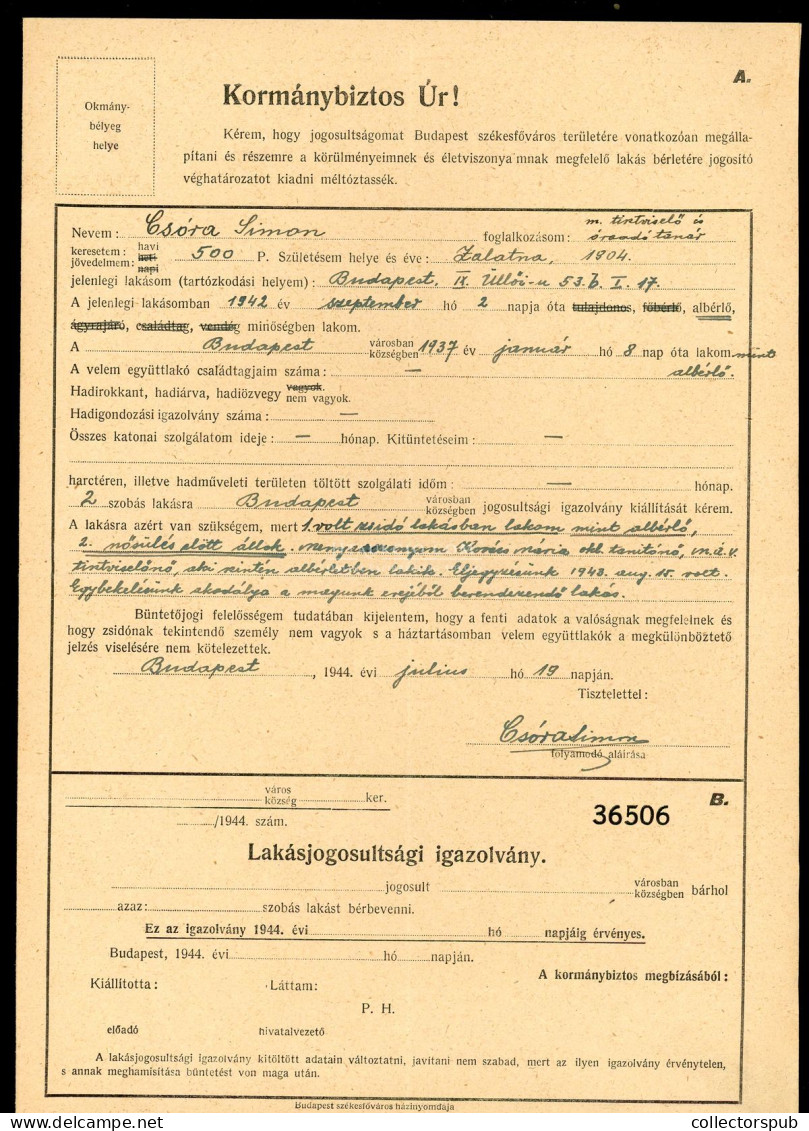 A.
Okmány-
bélyeg
helye
Kormánybiztos Úr!
Kérem, hogy jogosultságomat Budapest székesfőváros területére vonatkozóan megálla-
pítani és részemre a körülményeimnek és életviszonyaimnak megfelelő lakás bérletére jogosító
véghatározatot kiadni méltóztassék.
m. tisztviselő és
Nevem: Csóra Simon foglalkozásom: óraadó tanár
keresetem: havi
jövedelmem: heti napi 500 P. Születésem helye és éve: Zalatna, 1904.
jelenlegi lakásom (tartózkodási helyem): Budapest, IX. Üllői-u 53.b. I. 17.
A jelenlegi lakásomban 1942 év szeptember hó 2 napja óta tulajdonos, főbérlő, albérlő,
ágyrajáró, családtag, vendég minőségben lakom.
A Budapest városban községben 1937 év január hó 8 nap óta lakom mint
A velem együttlakó családtagjaim száma: — albérlő.
Hadirokkant, hadiárva, hadiözvegy vagyok. nem vagyok.
Hadigondozási igazolvány száma: —
Összes katonai szolgálatom ideje: — hónap. Kitüntetéseim: —
harctéren, illetve hadműveleti területen töltött szolgálati időm: — hónap.
2 szobás lakásra Budapest városban községben jogosultsági igazolvány kiállítását kérem.
A lakásra azért van szükségem, mert 1. volt zsidó lakásban lakom mint albérlő,
2. nősülés előtt állok. Menyasszonyom Kovács Mária okl. tanítónő, m.á.v.
tisztviselőnő, aki szintén albérletben lakik. Eljegyzésünk 1943. aug. 15. volt.
Egybekelésünk akadálya a magunk erejéből berendezendő lakás.
Büntetőjogi felelősségem tudatában kijelentem, hogy a fenti adatok a valóságnak megfelelnek és
hogy zsidónak tekintendő személy nem vagyok s a háztartásomban velem együttlakók a megkülönböztető
jelzés viselésére nem kötelezettek.
Budapest, 1944. évi július hó 19 napján.
Tisztelettel:
Csóra Simon
folyamodó aláírása
város község ker.
/1944. szám.
36506
B.
Lakásjogosultsági igazolvány.
jogosult városban községben bárhol
azaz: szobás lakást bérbevenni.
Ez az igazolvány 1944. évi hó napjáig érvényes.
Budapest, 1944. évi hó napján.
A kormánybiztos megbízásából:
Kiállította: Láttam:
P. H.
előadó hivatalvezető
A lakásjogosultsági igazolvány kitöltött adatain változtatni, javítani nem szabad, mert az ilyen igazolvány érvénytelen,
s annak meghamisítása büntetést von maga után.
Budapest székesfőváros házinyomdája
collectorspub